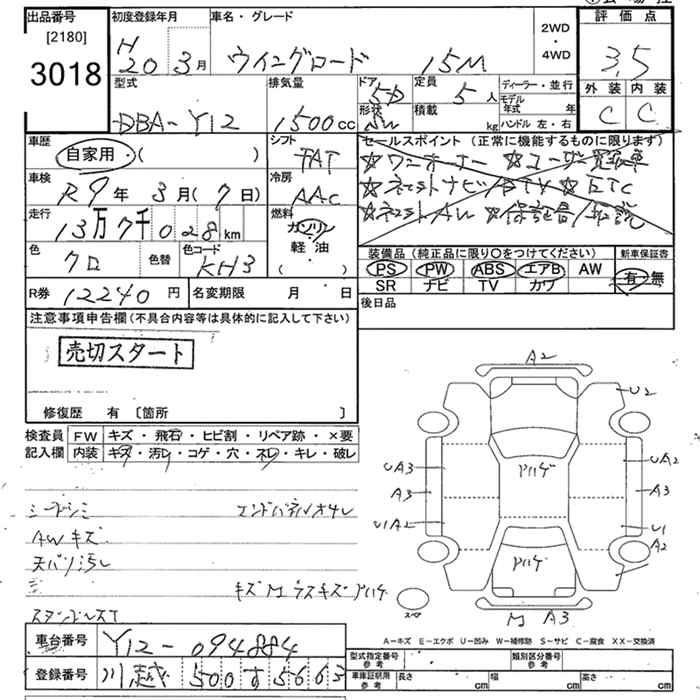 出品番号
[2180]
3018
初度登録年月
H
20 3月
車名・グレード
ウイングロード 15M
2WD
・
4WD
評価点
3.5
外装 内装
C C
型式
DBA-Y12
排気量
1500cc
ドア
5D
形状
定員
5人
積載
kg
ディーラー・並行
モデル年式 年
ハンドル 左・右
車歴
自家用・( )
シフト
FAT
車検
R9年3月(7日)
冷房
AAC
走行
13万7千028km
燃料
ガソリン
軽油
( )
色
クロ
色替
色コード
KH3
セールスポイント (正常に機能するものに限ります)
☆ワンオーナー ☆ユーザー買取車
☆ネットナビ/TV ☆ETC
装備品 (純正品に限り○をつけてください)
PS PW ABS エアB AW
SR ナビ TV カワ
新車保証書
有・無
R券 12240円
名変期限 月 日
後日品
注意事項申告欄(不具合内容等は具体的に記入して下さい)
売切スタート
修復歴 有 〔箇所 〕
検査員
記入欄
FW キズ・飛石・ヒビ割・リペア跡・×要
内装 キズ・汚レ・コゲ・穴・ネレ・キレ・破レ
シートシミ
エンドパネルオサレ
AWキズ
天バリ汚レ
キズM ラスキズ アハゲ
A2
U2
アハゲ
UA3
UA2
A3
A3
U1A2
U1
A2
アハゲ
スペア
M A3
A-キズ E-エクボ U-凹み W-補修跡 S-サビ C-腐食 XX-交換済
車台番号 Y12-094884
登録番号 川越 500 す 5663
型式指定番号
参考
類別区分番号
参考
車庫証明用
参考
長さ cm 幅 cm 高さ cm